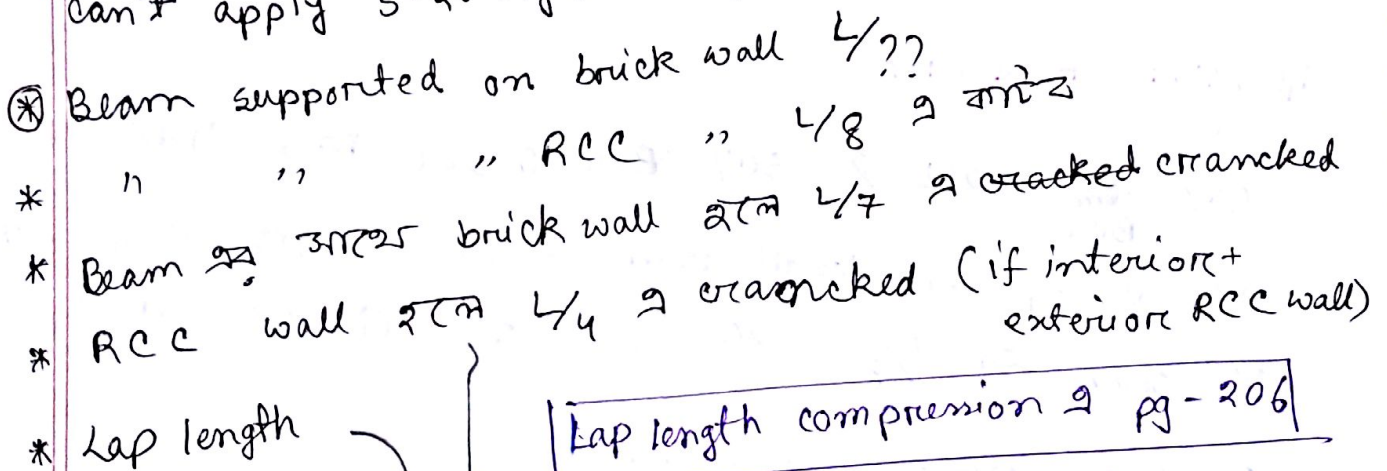 can't apply
⊛ Beam supported on brick wall L/??
* " " " RCC " L/8 এ কাটব
* Beam এর সাথে brick wall হলে L/7 এ cracked crancked
* RCC wall হলে L/4 এ crancked (if interior +
exterior RCC wall)
* Lap length
Lap length compression এ pg - 206